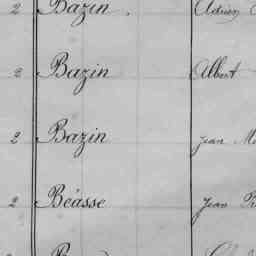 2 Bazin. Adrien
2 Bazin Albert
2 Bazin Jean
2 Béasse Jean
2